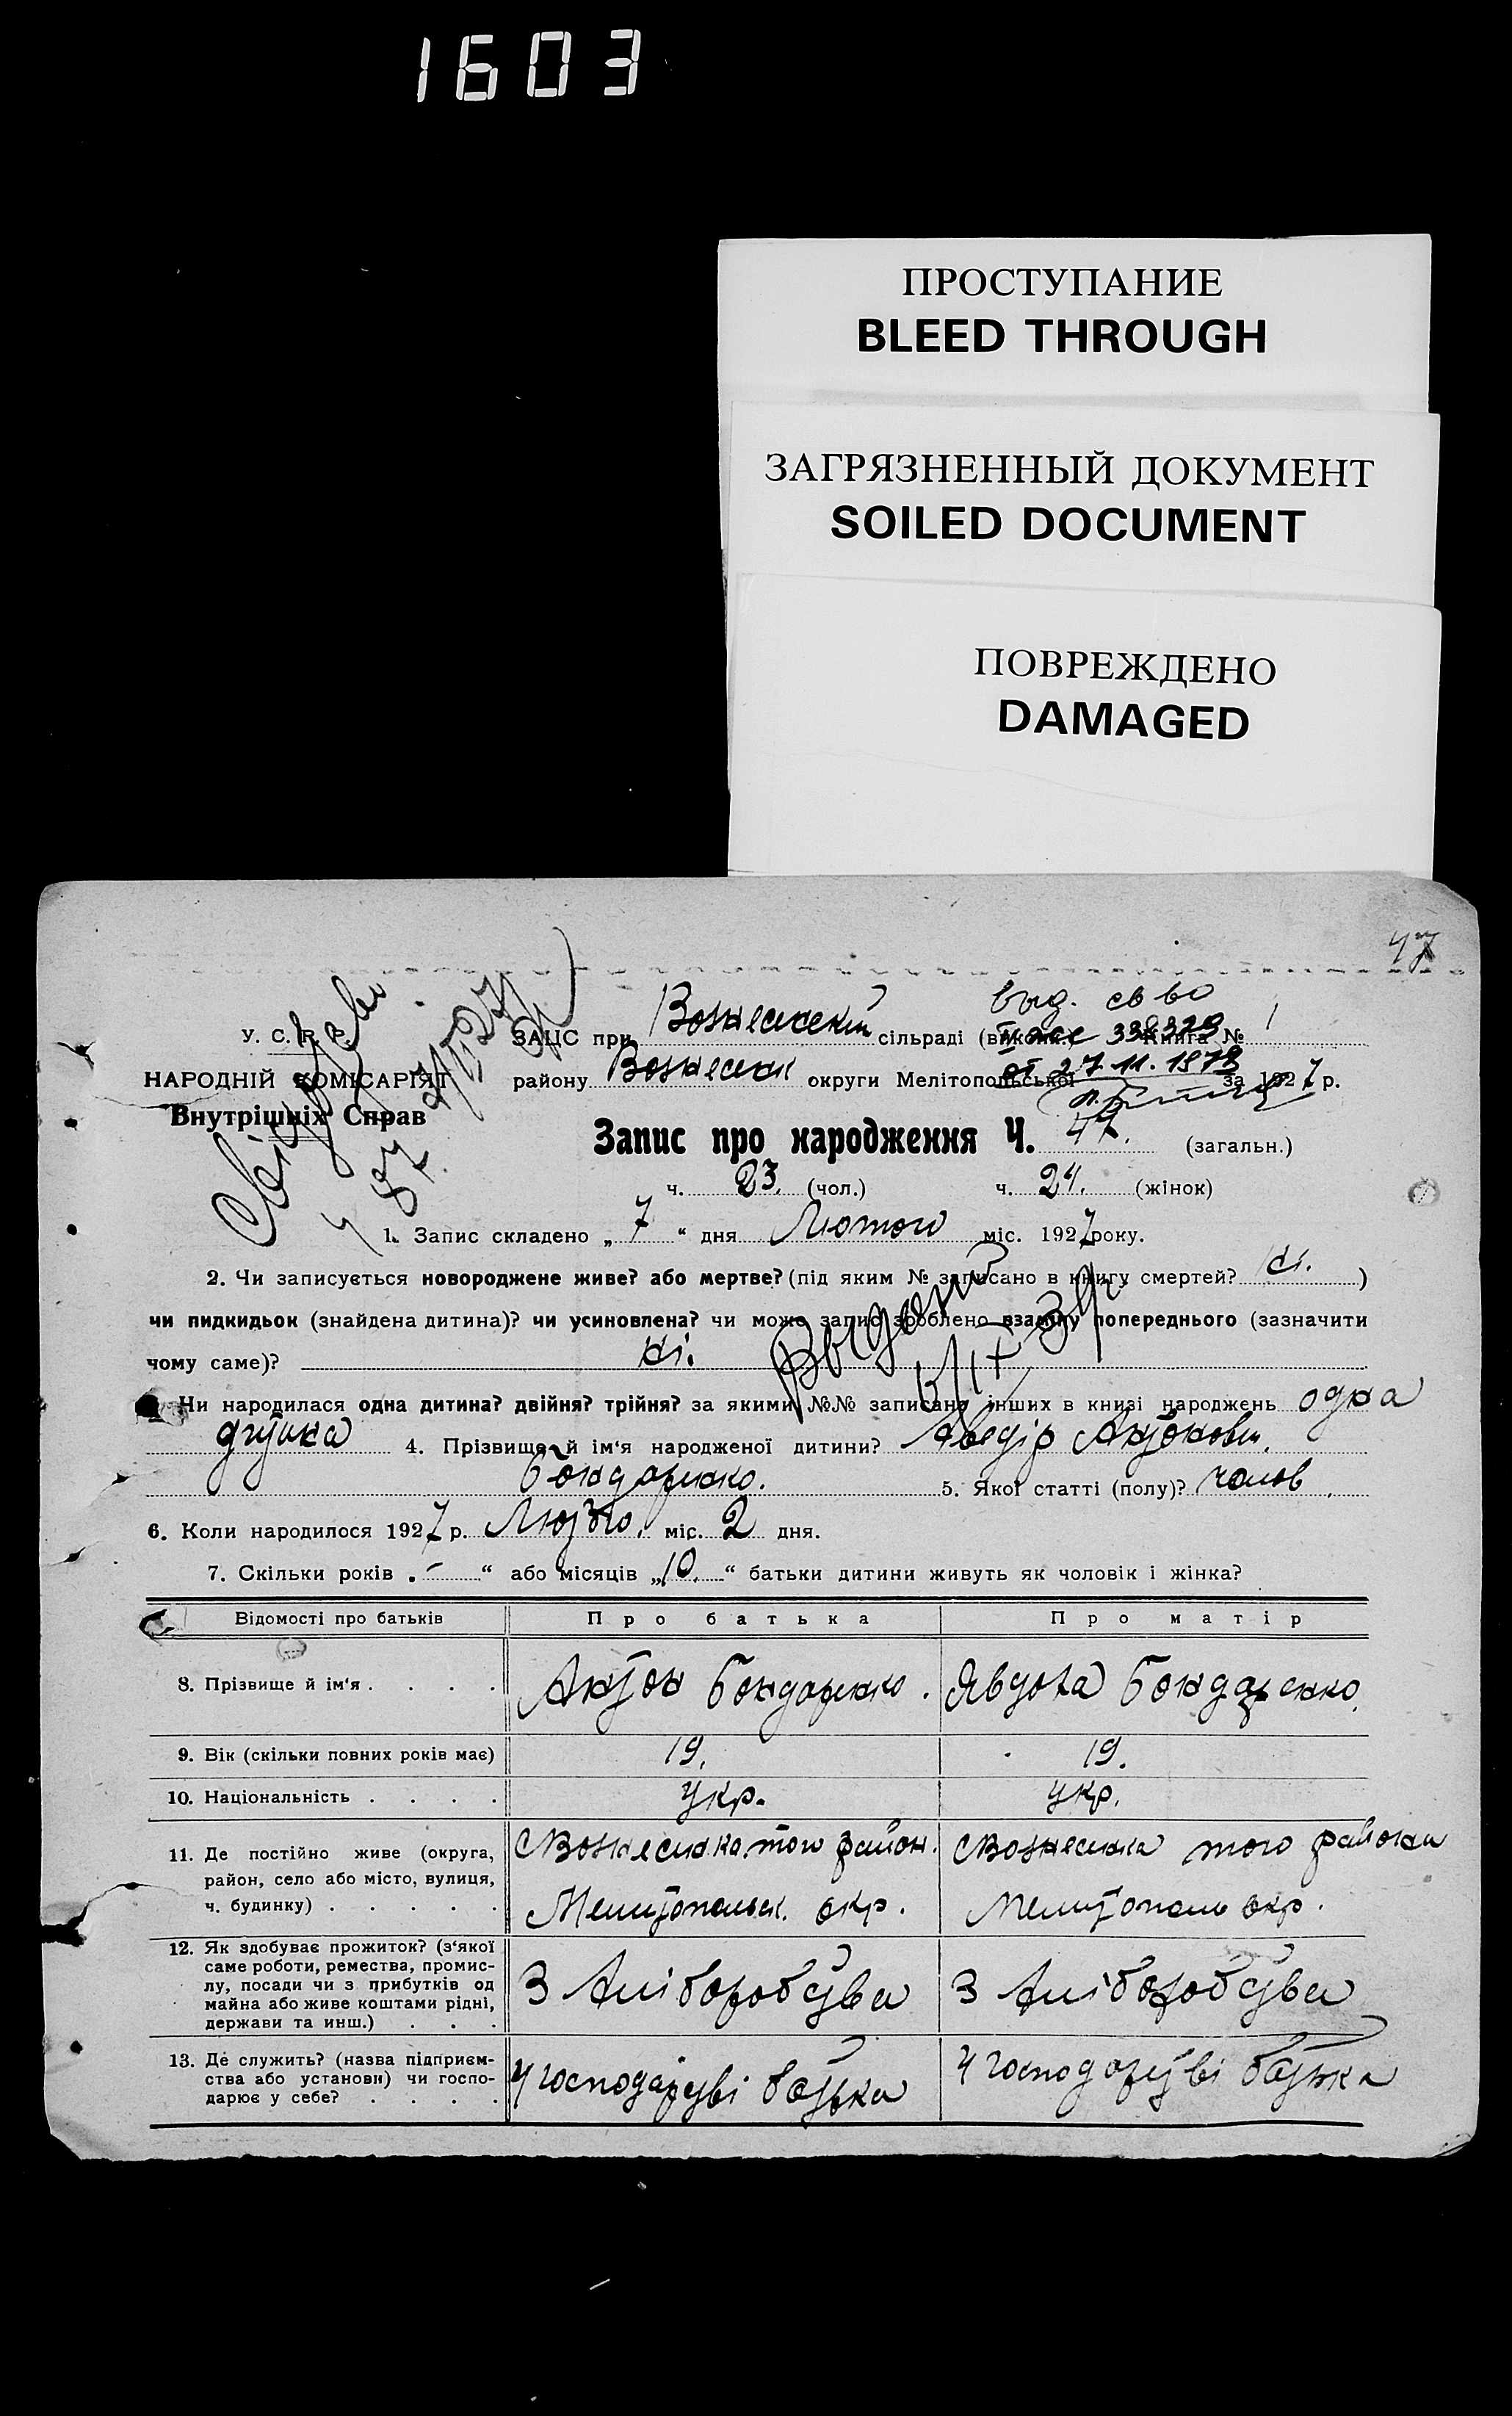 1603
ПРОСТУПАНИЕ
BLEED THROUGH
ЗАГРЯЗНЕННЫЙ ДОКУМЕНТ
SOILED DOCUMENT
ПОВРЕЖДЕНО
DAMAGED
47
выд. св во
У. С. Р. Р.
ЗАЦС при Вознесенскій сільраді (виконк.) 339329 Книга № 1
НАРОДНІЙ КОМІСАРІЯТ
району Вознесенск округи Мелітопольської от 27.11.1979 за 1927 р.
Внутрішніх Справ
Запис про народження Ч. 47. (загальн.)
ч. 23. (чол.) ч. 24. (жінок)
1. Запис складено „ 7 “ дня Лютого міс. 1927 року.
2. Чи записується новороджене живе? або мертве? (під яким № записано в книгу смертей? ні. )
чи пидкидьок (знайдена дитина)? чи усиновлена? чи може запис зроблено взаміну попереднього (зазначити
чому саме)? ні.
Выдано
Чи народилася одна дитина? двійня? трійня? за якими №№ записано інших в книзі народжень одна
4. Прізвище й ім'я народженої дитини? Антонови.
Бондаренко. 5. Якої статті (полу)? чолов.
6. Коли народилося 1927 р. Лютого. міс. 2 дня.
7. Скільки років „ - “ або місяців „ 10. “ батьки дитини живуть як чоловік і жінка?
Відомості про батьків Про батька Про матір
8. Прізвище й ім'я . . . . Антон Бондаренко. Явдоха Бондаренко.
9. Вік (скільки повних років має) 19. 19.
10. Національність . . . . укр. укр.
11. Де постійно живе (округа, район, село або місто, вулиця, ч. будинку) . . . . .
с Вознесенка того район. Мелитопольск. окр.
с Вознесенка того района Мелитополь окр.
12. Як здобуває прожиток? (з'якої саме роботи, ремества, промислу, посади чи з прибутків од майна або живе коштами рідні, держави та инш.) . . .
З хліборобства З хліборобства
13. Де служить? (назва підприємства або установи) чи господарює у себе? . . . .
У господарстві батька У господарстві батька